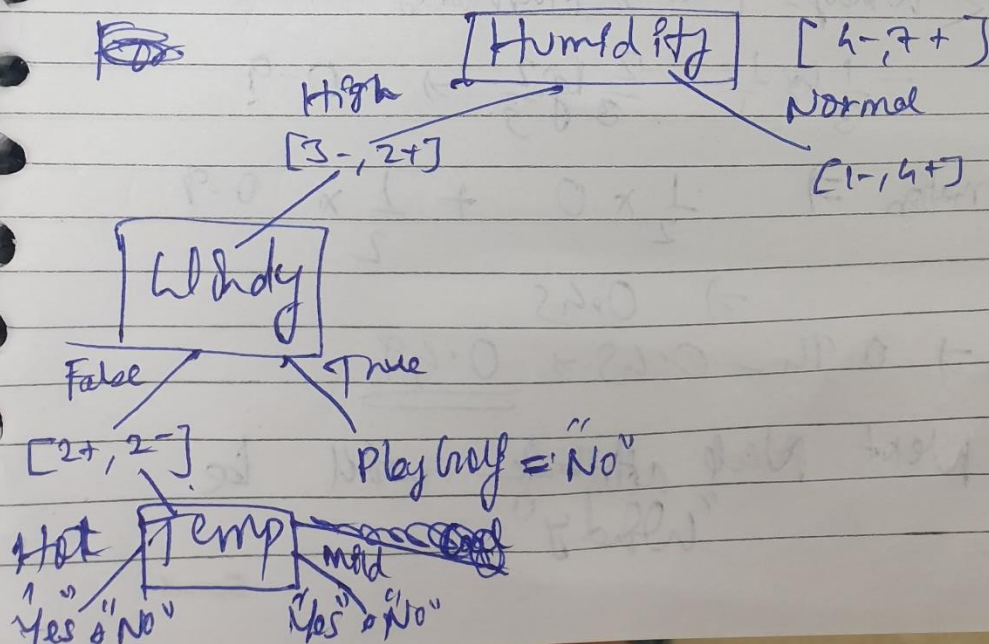 Humidity [4-,7+]
High Normal
[3-,2+] [1-,4+]
Windy
False True
[2+,2-] Play Golf = "No"
Hot Temp mild
"Yes" & "No" "Yes" & "No"